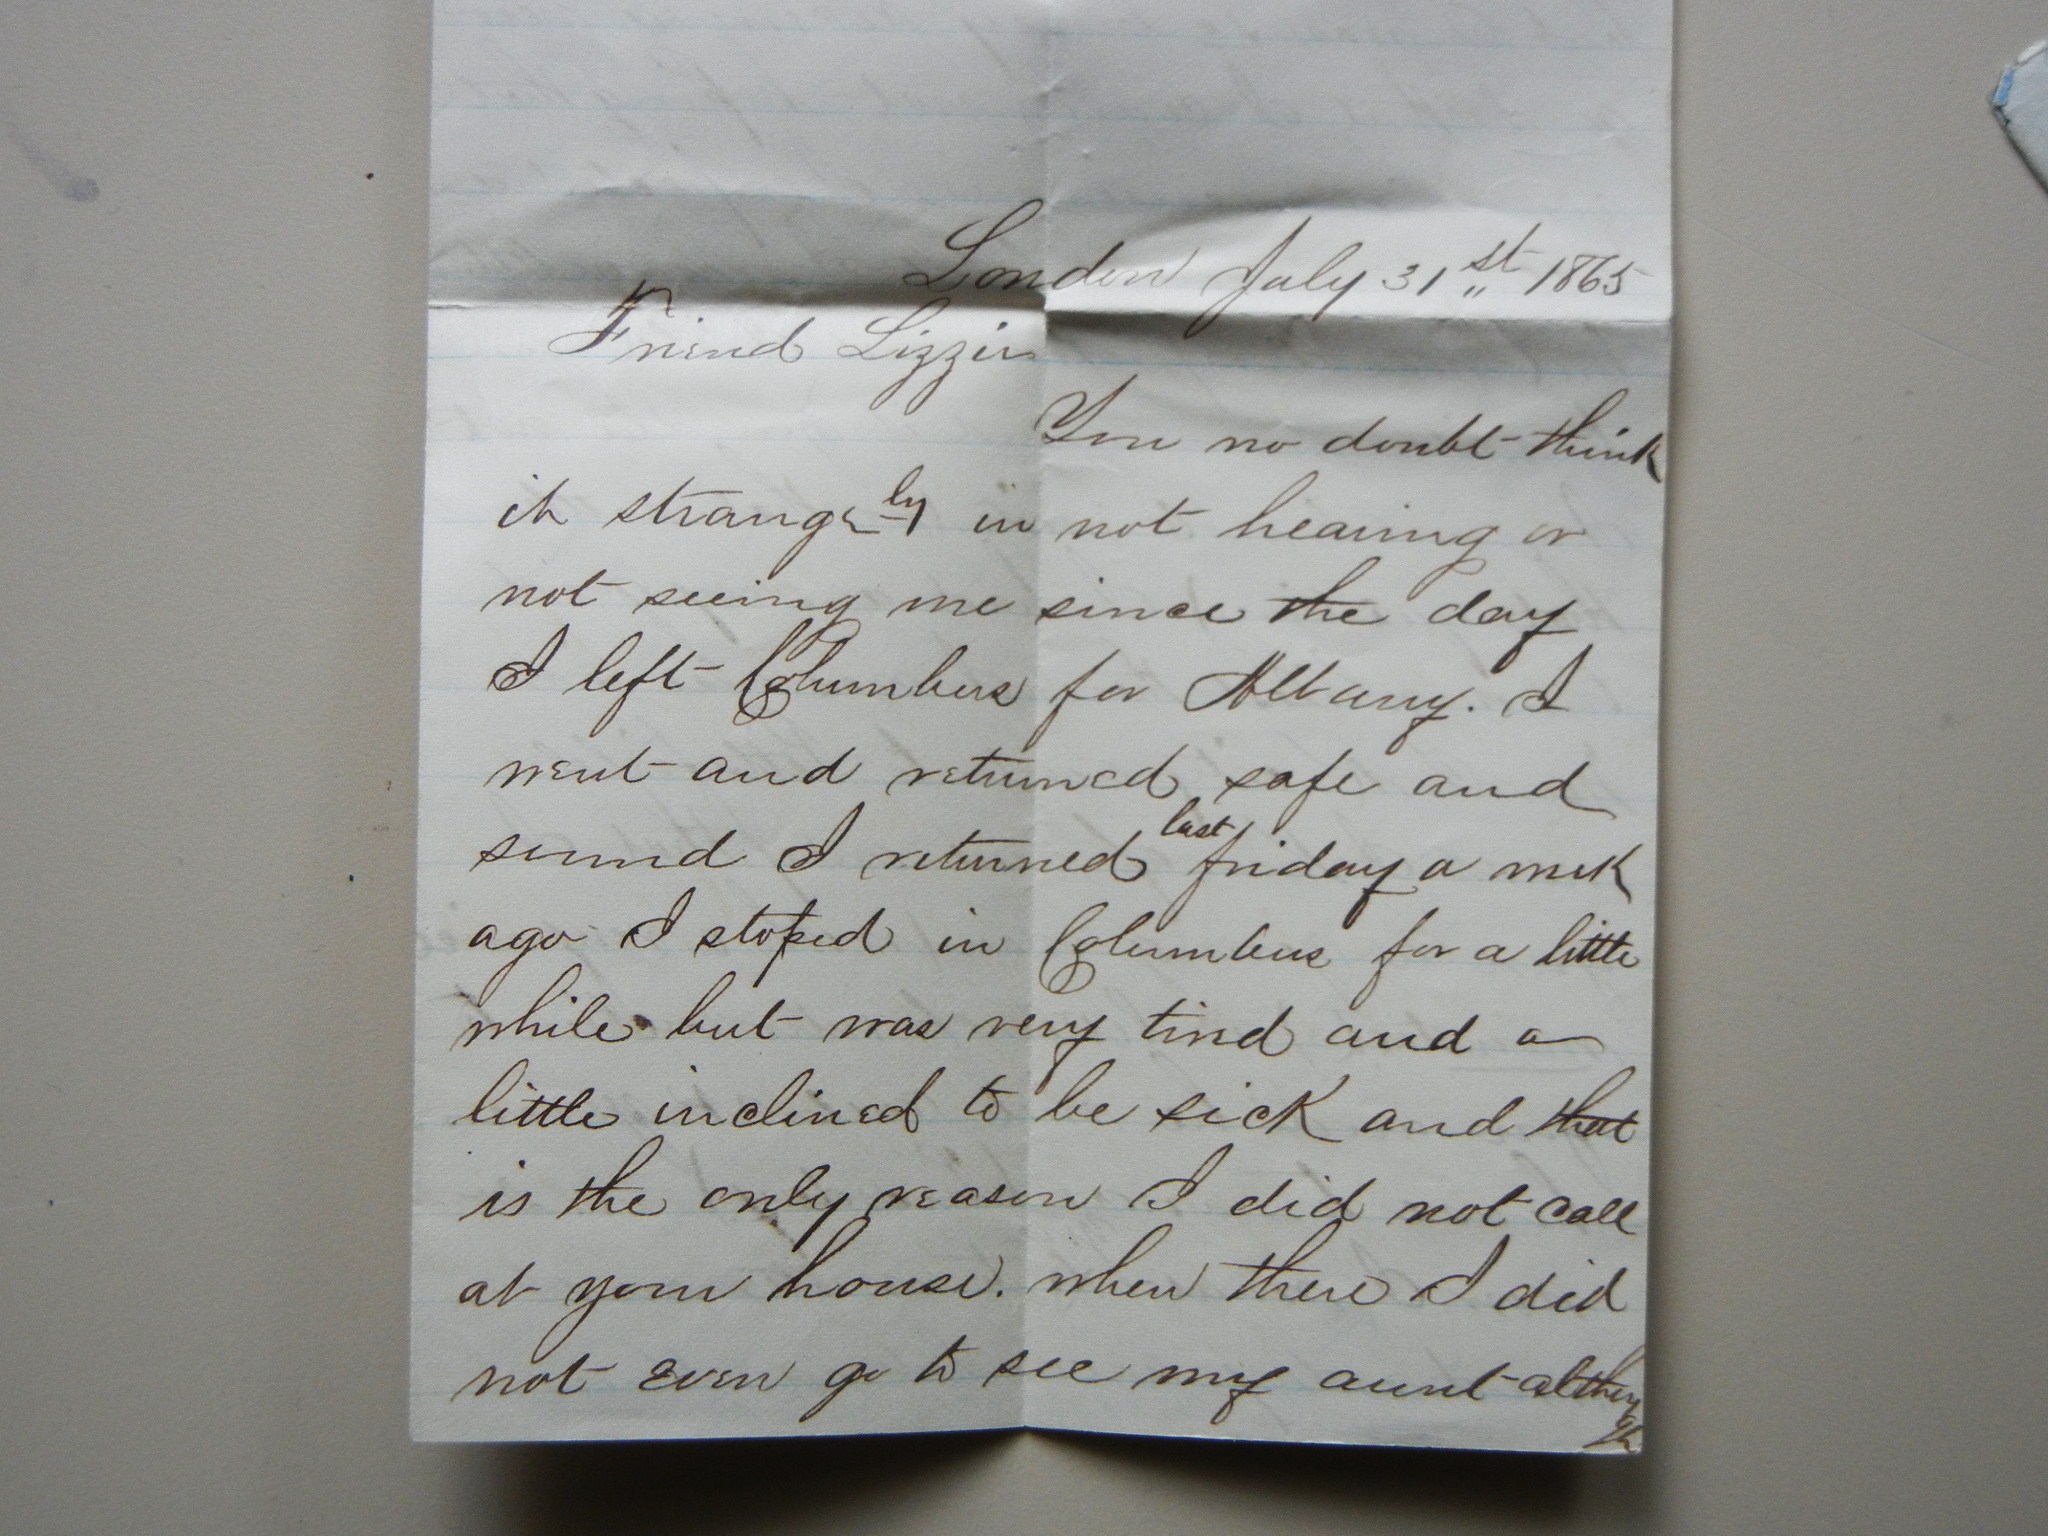 London July 31st 1865
Friend Lizzie
You no doubt think
it strangely in not hearing or
not seeing me since the day
I left Columbus for Albany. I
went and returned safe and
sound I returned last friday a week
ago I stoped in Columbus for a little
while but was very tired and a
little inclined to be sick and that
is the only reason I did not call
at your house. when there I did
not even go to see my aunt although